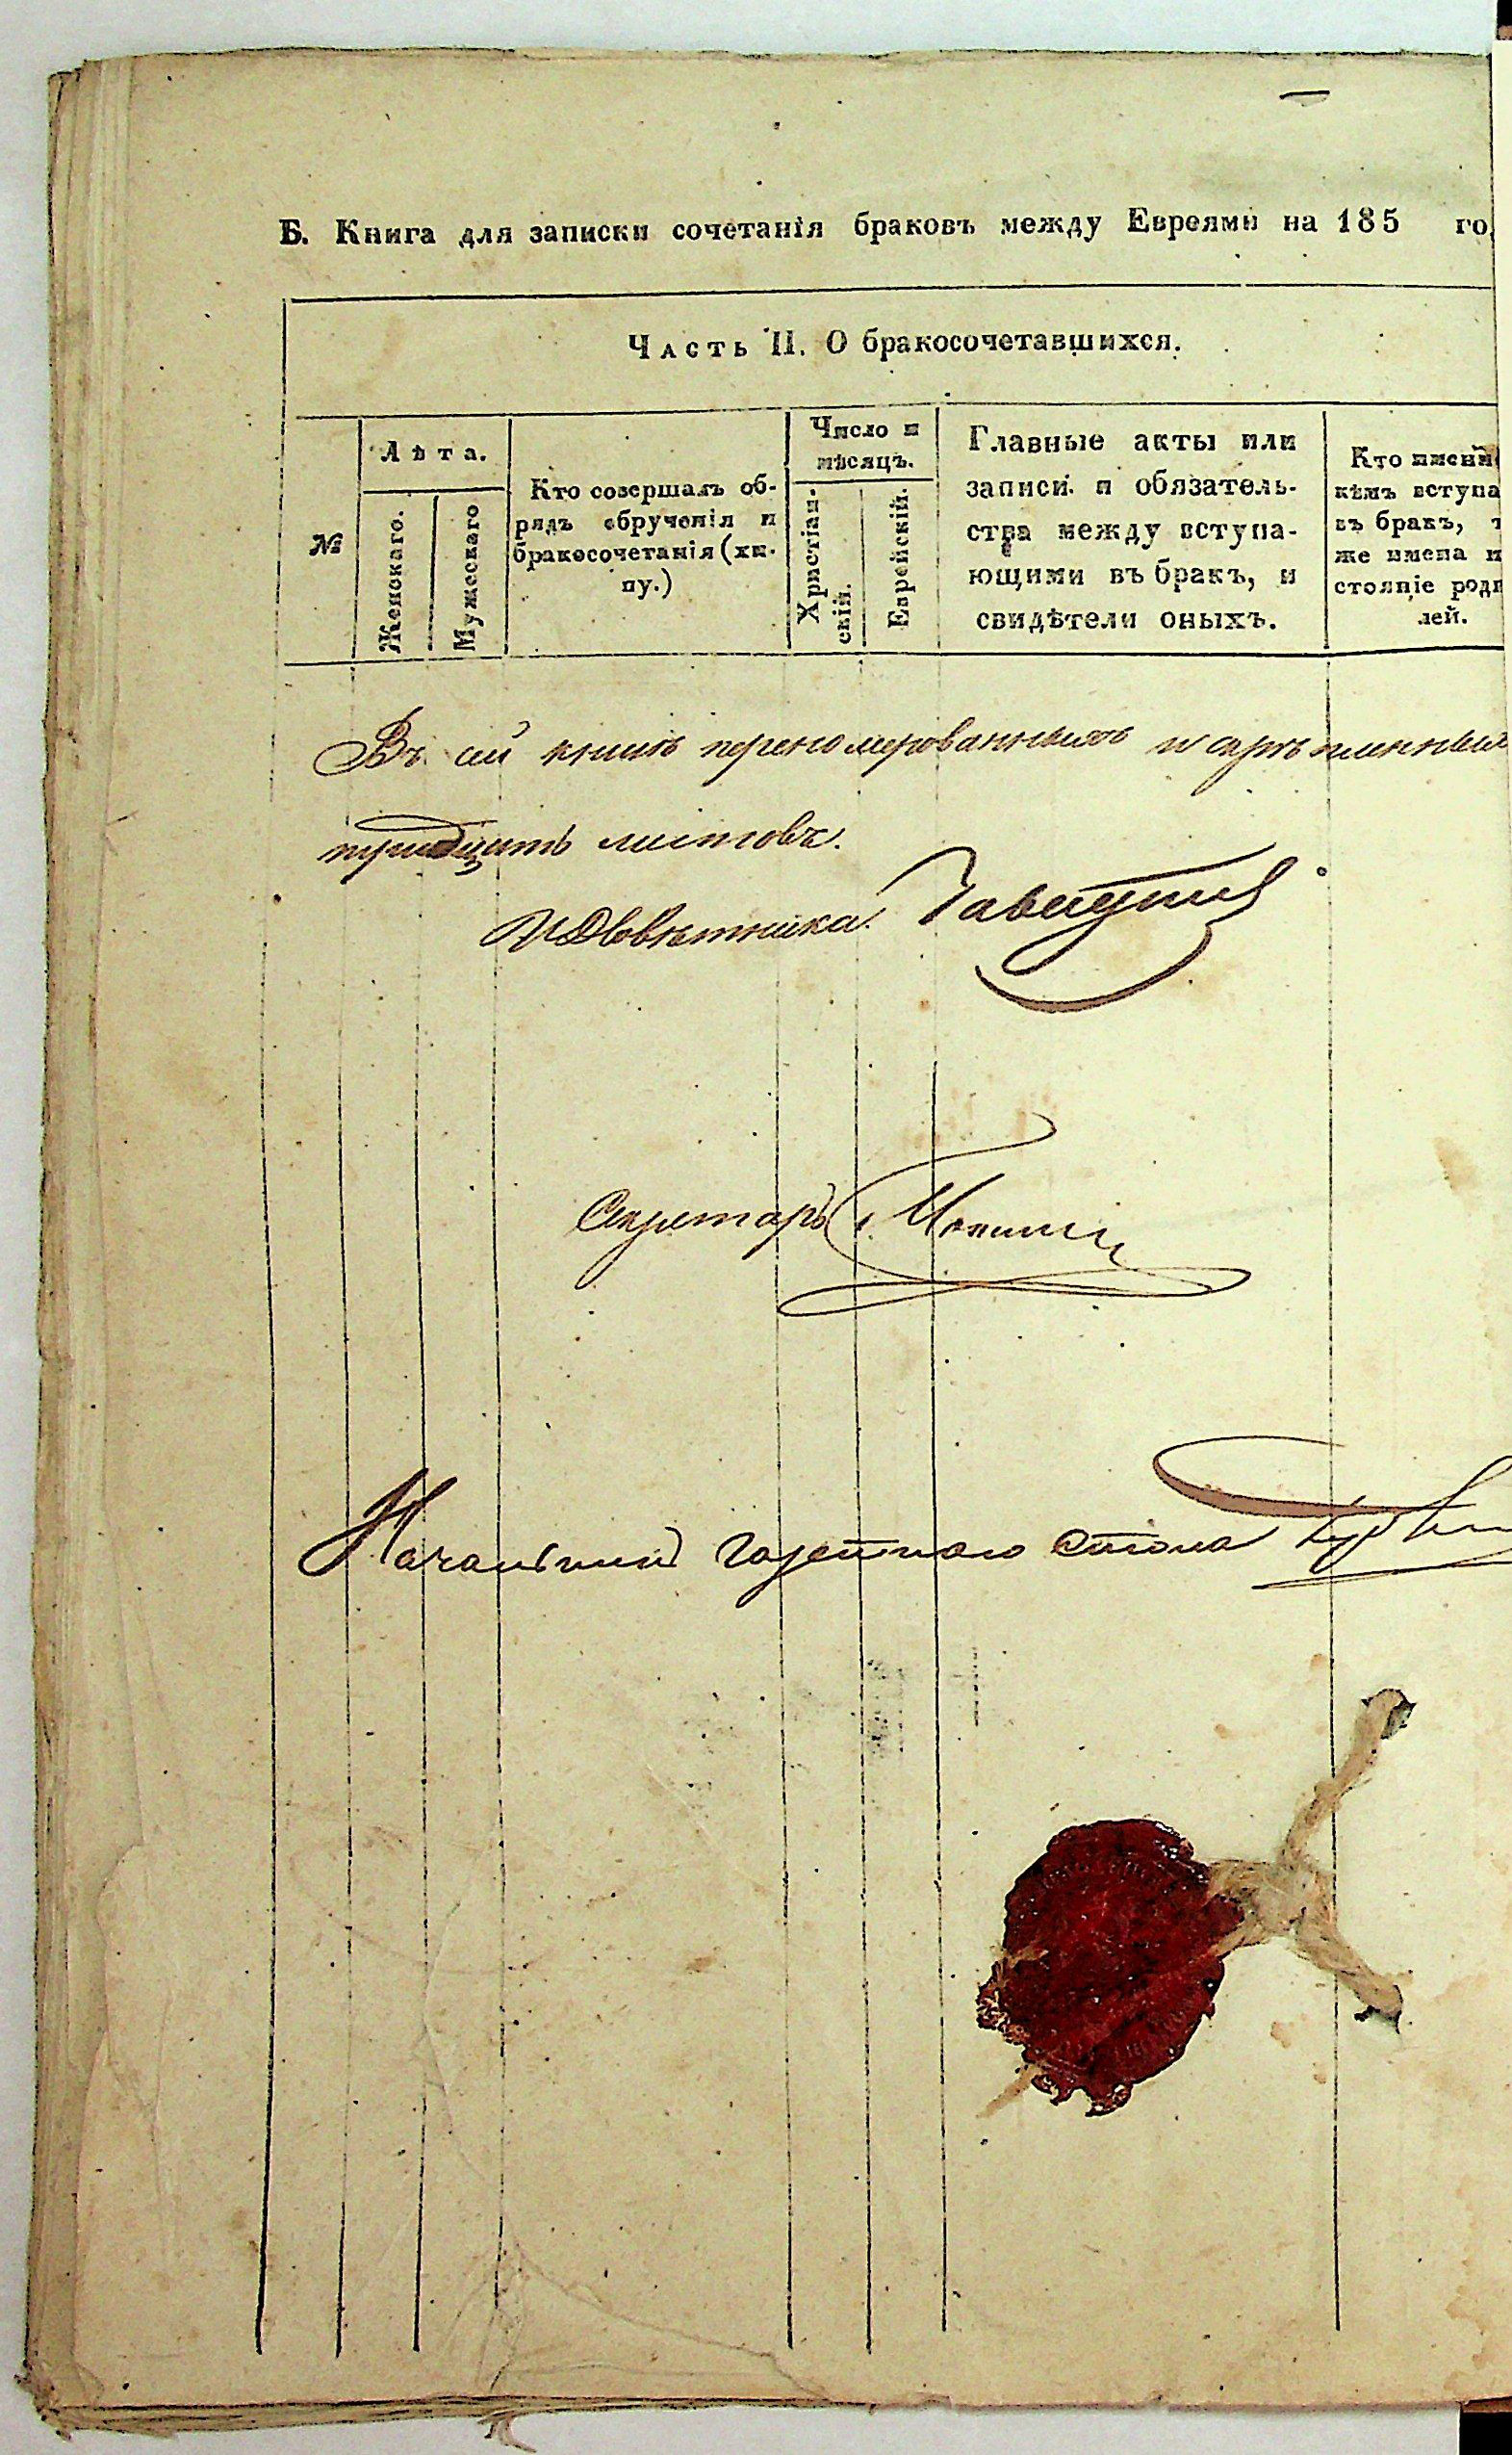 Б. Книга для записки сочетанія браковъ между Евреями на 185 го
Часть II. О бракосочетавшихся.
№
Лѣта.
Женскаго.
Мужескаго
Кто совершалъ об-
рядъ обрученія и
бракосочетанія (хи-
пу.)
Число и
мѣсяцъ.
Христіан-
скій.
Еврейскій.
Главные акты или
записи и обязатель-
ства между вступа-
ющими въ бракъ, и
свидѣтели оныхъ.
Кто имени
кѣмъ вступа
въ бракъ, т
же имена и
стояніе роди
лей.
Въ сей книгѣ перенумерованныхъ и скрѣпленныхъ
тридцать листовъ.
И Д Совѣтника
Секретарь
Начальникъ газетнаго стола